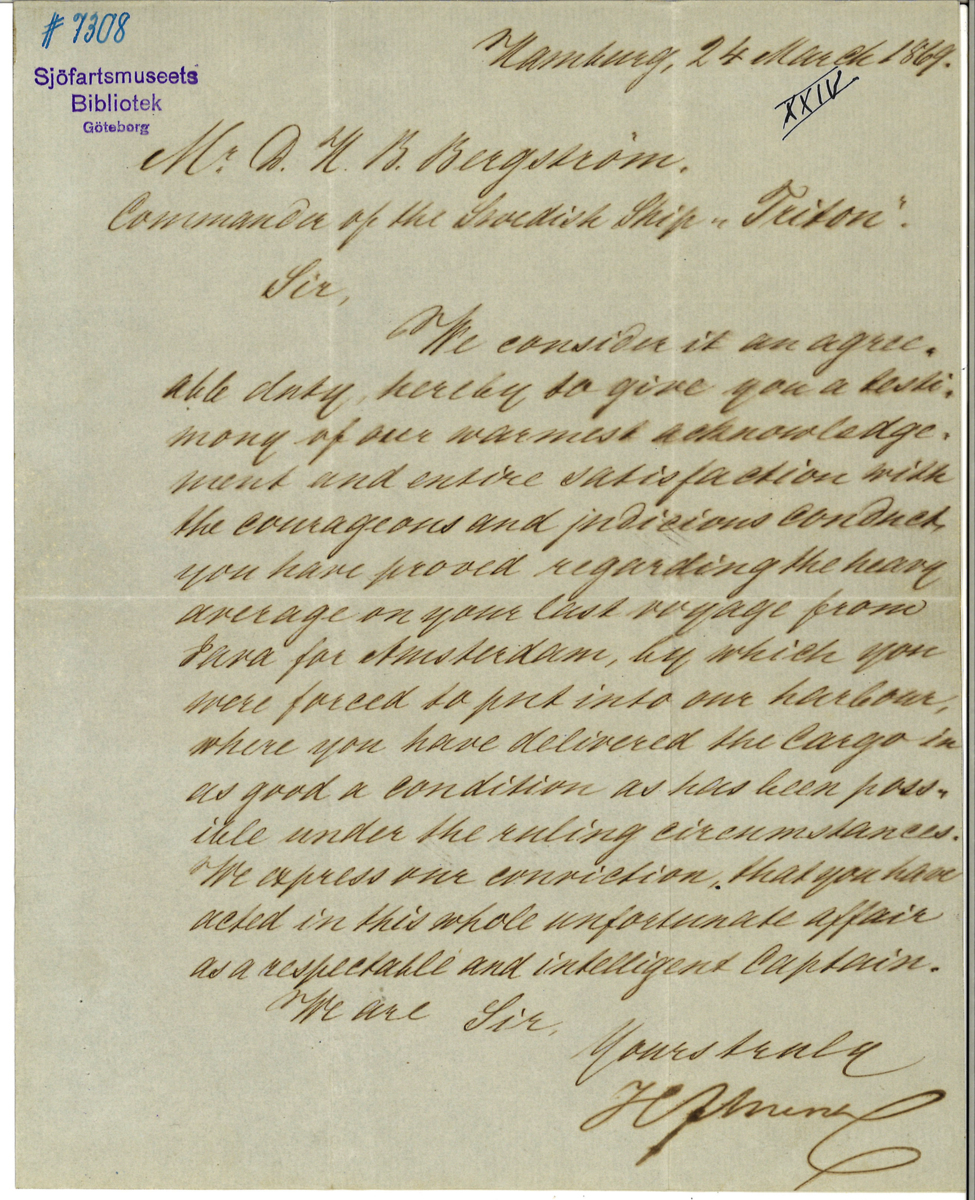 # 7308
Sjöfartsmuseets
Bibliotek
Göteborg
Hamburg, 24 March 1869.
XXIV.
Mr. D. H. B. Bergström.
Commander of the Swedish Ship „Triton".
Sir,
We consider it an agree-
able duty, hereby to give you a testi-
mony of our warmest acknowledge-
ment and entire satisfaction with
the courageous and judicious conduct,
you have proved regarding the heavy
average on your last voyage from
Java for Amsterdam, by which you
were forced to put into our harbour,
where you have delivered the Cargo in
as good a condition as has been poss-
ible under the ruling circumstances.
We express our conviction, that you have
acted in this whole unfortunate affair
as a respectable and intelligent Captain.
We are Sir,
Yours truly